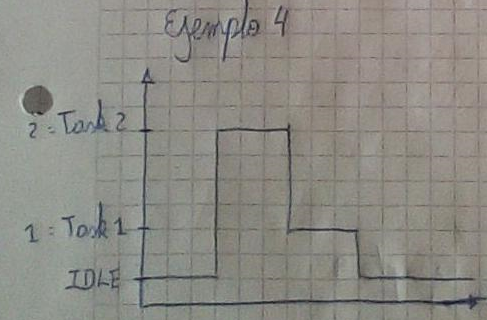 Ejemplo 4
2: Task 2
1: Task 1
IDLE